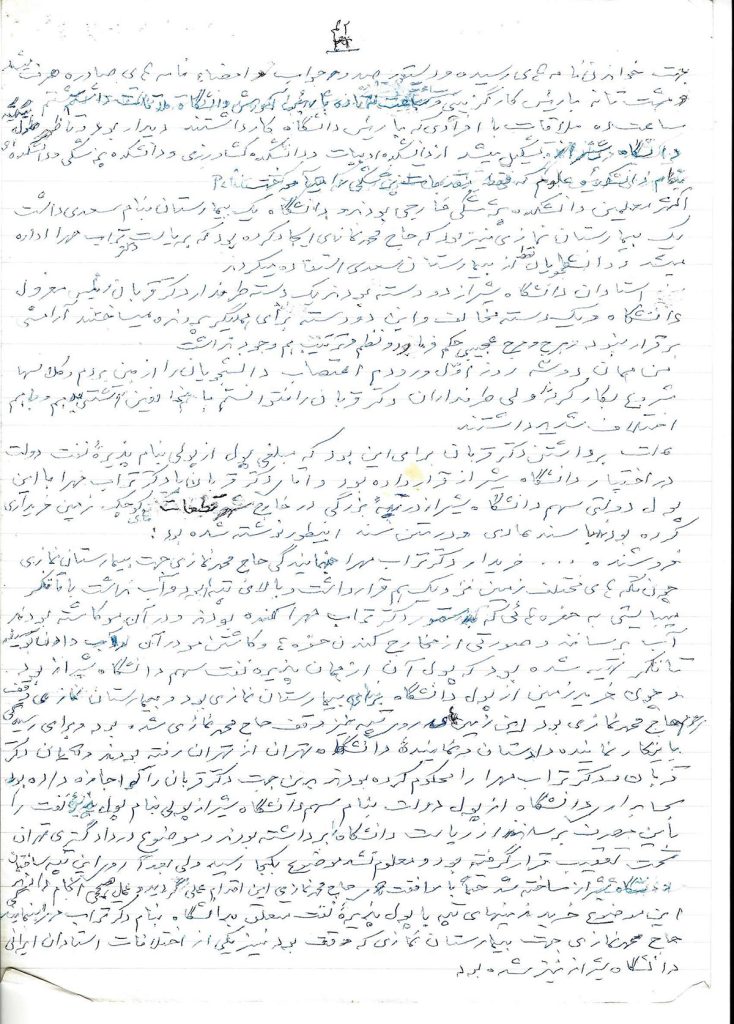 ۴۲
جهت خواندن نامه های رسیده و دستور صدور جواب و امضاء نامه های صادره صرف میشد
ساعت ده ملاقات با افرادی که با رئیس دانشگاه کار داشتند دیدار بود و تا ظهر طول
دانشگاه شیراز تشکیل میشد از دانشکده ادبیات و دانشکده کشاورزی و دانشکده پزشکی و دانشکده
بنام دانشکده علوم که فقط
اکثر معلمین دانشکده پزشکی خارجی بودند و دانشگاه یک بیمارستان بنام سعدی داشت
یک بیمارستان نمازی نیز بود که حاج محمد نمازی ایجاد کرده بود که بریاست دکتر تراب مهرا اداره
میشد و دانشجویان فقط از بیمارستان سعدی استفاده میکردند
استادان دانشگاه شیراز دو دسته بودند یک دسته طرفدار دکتر قربان رئیس معزول
دانشگاه و یک دسته مخالف و این دو دسته برای یکدیگر پرونده میساختند آرامش
برقرار نبود و هرج و مرج عجیبی حکم فرما بود و نظم و ترتیب هم وجود نداشت
من همان دو سه روز اول ورودم اعتصاب دانشجویان را از بین بردم و کلاسها
شروع بکار کرد ولی طرفداران دکتر قربان را نتوانستم با مخالفین آشتی بدهم و با هم
اختلاف شدید داشتند
علت برداشتن دکتر قربان برای این بود که مبلغی پول از پولی بنام پذیره نفت دولت
در اختیار دانشگاه شیراز قرار داده بود و آقای دکتر قربان با دکتر تراب مهرا با این
پول دولتی سهم دانشگاه شیراز در تپه بزرگی در خارج شهر قطعات کوچک زمین خریداری
کرده بودند با سند عادی و در متن سند اینطور نوشته شده بود:
فروشنده .... خریدار دکتر تراب مهرا بنمایندگی حاج محمد نمازی جهت بیمارستان نمازی
چون تکه های مختلف زمین نزدیک بهم قرار داشت و بالای تپه بود و آب نداشت با تانکر
میبایستی به حفره هائی که بدستور دکتر تراب مهرا کنده بودند و در آن مو کاشته بودند
آب برسانند و صورتی از مخارج کندن حفره ها و کاشتن مو در آن و آب دادن
تانکر تهیه شده بود که پول آن از همان پذیره نفت سهم دانشگاه شیراز بود
در حوی خرید زمین از پول دانشگاه برای بیمارستان نمازی بود و بیمارستان نمازی وقف
حاج محمد نمازی بود این زمین های روی تپه نیز وقف حاج محمد نمازی شده بود و برای رسیدگی
باینکار نماینده دادستان و نماینده دانشگاه تهران از تهران رفته بودند و آقایان دکتر
قربان و دکتر تراب مهرا را محکوم کرده بودند بدین جهت دکتر قربان را که اجازه داده بود
حسابدار دانشگاه از پول دولت بنام سهم دانشگاه شیراز پولی بنام پول پذیره نفت را
باین مصرف برساند از ریاست دانشگاه برداشته بودند و موضوع در دادگستری تهران
تحت تعقیب قرار گرفته بود و معلوم نشد موضوع بکجا رسید ولی بعداً روی این تپه ساختمان
دانشگاه شیراز ساخته شد حتماً با موافقت حاج محمد نمازی این اقدام عملی گردید و عمل صحیحی انجام دادند
این موضوع خرید زمینهای تپه با پول پذیره نفت متعلق بدانشگاه بنام دکتر تراب مهرا نماینده
حاج محمد نمازی جهت بیمارستان نمازی که وقف بود نیز یکی از اختلافات استادان ایرانی
دانشگاه شیراز نیز شده بود